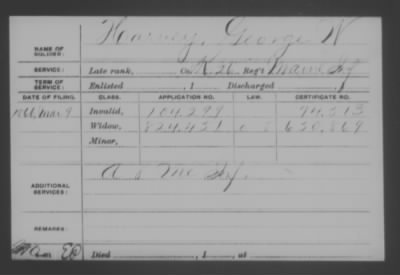 Harvey, George W
NAME OF SOLDIER:
SERVICE: Late rank, Co. K, 26 Reg't Maine Inf
TERM OF SERVICE: Enlisted , 1 Discharged , 1
DATE OF FILING. CLASS. APPLICATION NO. LAW. CERTIFICATE NO.
1866 Mar 9 Invalid, 104.299 94.313
Widow, 824.451 630.869
Minor,
ADDITIONAL SERVICES: A Me Inf.
REMARKS:
Died , 1 , at